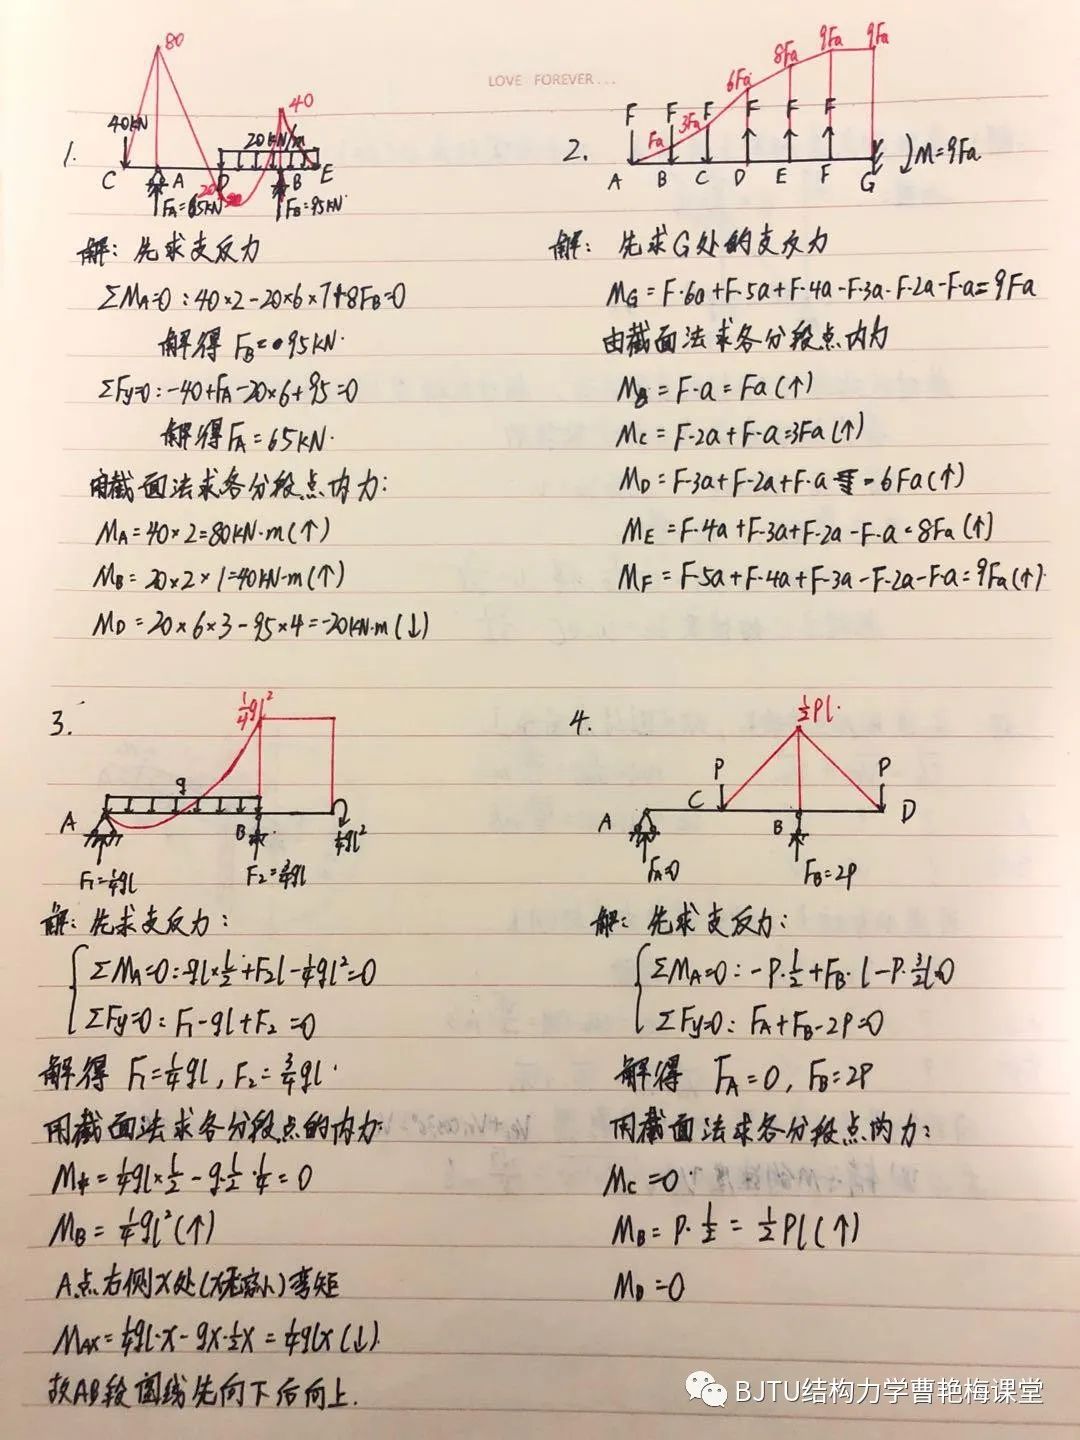 LOVE FOREVER...
1.
80
40
40KN
20KN/m
C A D B E
20
F_A=65KN F_B=95KN
解：先求支反力
ΣM_A=0：40×2-20×6×7+8F_B=0
解得 F_B=95KN.
ΣFy=0：-40+F_A-20×6+95=0
解得F_A=65KN.
用截面法求各分段点内力：
M_A=40×2=80KN·m(↑)
M_B=20×2×1=40KN·m(↑)
M_D=20×6×3-95×4=-20KN·m(↓)
2.
Fa 3Fa 6Fa 8Fa 9Fa 9Fa
F F F F F F
A B C D E F G
M=9Fa
解：先求G处的支反力
M_G=F·6a+F·5a+F·4a-F·3a-F·2a-F·a=9Fa
由截面法求各分段点内力
M_B=F·a=Fa(↑)
M_C=F·2a+F·a=3Fa(↑)
M_D=F·3a+F·2a+F·a=6Fa(↑)
M_E=F·4a+F·3a+F·2a-F·a=8Fa(↑)
M_F=F·5a+F·4a+F·3a-F·2a-F·a=9Fa(↑)
3.
¼ql²
q
A B ¼ql²
F₁=¼ql F₂=¾ql
解：先求支反力：
ΣM_A=0：-ql×½+F₂l-¼ql²=0
ΣFy=0：F₁-ql+F₂=0
解得 F₁=¼ql，F₂=¾ql.
用截面法求各分段点的内力：
M中=¼ql×½-q·½·¼=0
M_B=¼ql²(↑)
A点右侧x处(x无穷小)弯矩
M_AX=¼ql·x-qx·½x=¼qlx(↓)
故AB段图线先向下后向上.
4.
½Pl
P P
A C B D
F_A=0 F_B=2P
解：先求支反力：
ΣM_A=0：-P·½+F_B·l-P·3/2l=0
ΣFy=0：F_A+F_B-2P=0
解得 F_A=0，F_B=2P
用截面法求各分段点内力：
M_C=0
M_B=P·½=½Pl(↑)
M_D=0
BJTU结构力学曹艳梅课堂